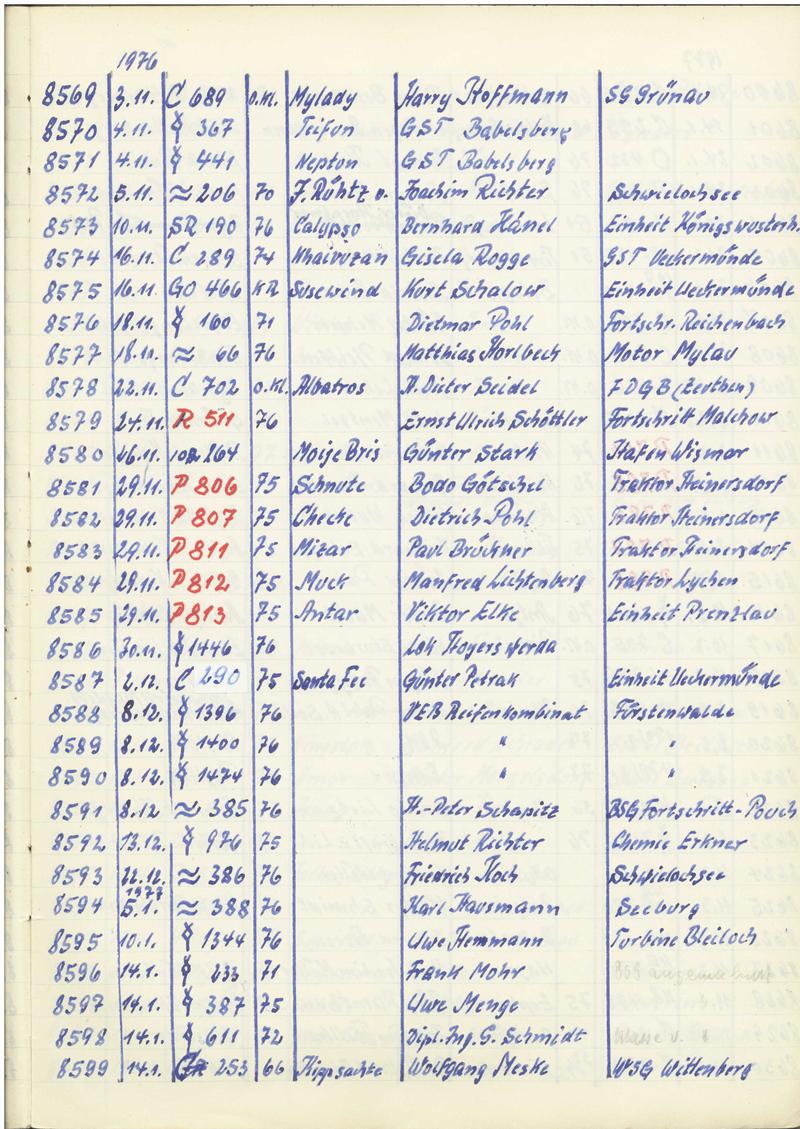 1976
8569 3.11. C 689 o.Kl. Mylady Harry Hoffmann SG Grünau
8570 4.11. 367 Teifun GST Babelsberg
8571 4.11. 441 Neptun GST Babelsberg
8572 5.11. ≈ 206 70 F. Rühtz v. Joachim Richter Schwielochsee
8573 10.11. SR 190 76 Calypso Bernhard Hänel Einheit Königswusterh.
8574 16.11. C 289 74 Gisela Rogge GST Ueckermünde
8575 16.11. GO 466 KR Susewind Kurt Schalow Einheit Ueckermünde
8576 18.11. 160 71 Dietmar Pohl Fortschr. Reichenbach
8577 18.11. ≈ 66 76 Matthias Horlbeck Motor Mylau
8578 22.11. C 702 o.Kl. Albatros H. Dieter Seidel FDGB (Zeuthen)
8579 24.11. R 511 76 Ernst Ulrich Schöttler Fortschritt Malchow
8580 26.11. 264 Moije Bris Günter Stark Hafen Wismar
8581 29.11. P 806 75 Schnute Bodo Götschel Traktor Heinersdorf
8582 29.11. P 807 75 Checke Dietrich Pohl Traktor Heinersdorf
8583 29.11. P 811 75 Mizar Paul Brückner Traktor Heinersdorf
8584 29.11. P 812 75 Muck Manfred Lichtenberg Traktor Lychen
8585 29.11. P 813 75 Antar Viktor Elke Einheit Prenzlau
8586 30.11. 1446 76 Lok Hoyerswerda
8587 2.12. C 290 75 Santa Fee Günter Petrak Einheit Ueckermünde
8588 8.12. 1396 76 VEB Reifenkombinat Fürstenwalde
8589 8.12. 1400 76 " "
8590 8.12. 1474 76 " "
8591 8.12 ≈ 385 76 H.-Peter Schapitz BSG Fortschritt-Pouch
8592 13.12. 976 75 Helmut Richter Chemie Erkner
8593 22.12. ≈ 386 76 Friedrich Koch Schwielochsee
1977
8594 5.1. ≈ 388 76 Karl Hausmann Seeburg
8595 10.1. 1344 76 Uwe Hemmann Turbine Bleiloch
8596 14.1. 233 71 Frank Mohr BSG
8597 14.1. 387 75 Uwe Menge
8598 14.1. 611 72 Dipl.-Ing. G. Schmidt
8599 14.1. 253 66 Kippsachte Wolfgang Meske WSG Wittenberg